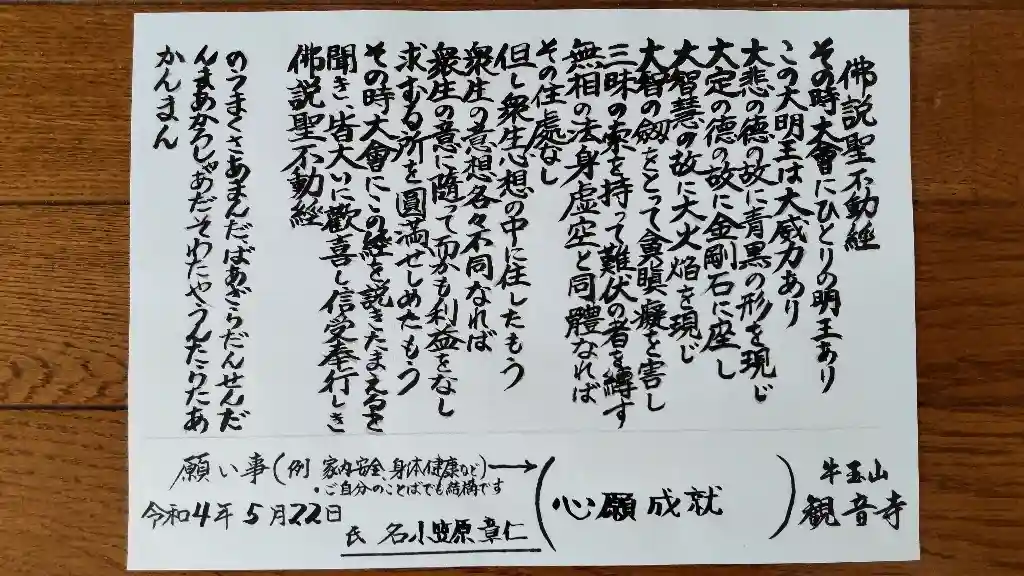 佛説聖不動經
その時大會にひとりの明王あり
この大明王は大威力あり
大悲の徳の故に青黒の形を現じ
大定の徳の故に金剛石に座し
大智慧の故に大火焔を現じ
大智の劔をとって貪瞋癡を害し
三昧の索を持って難伏の者を縛す
無相の法身虚空と同體なれば
その住處なし
但し衆生心想の中に住したもう
衆生の意想各々不同なれば
衆生の意に隨て而かも利益をなし
求むる所を圓満せしめたもう
その時大會にこの経を説きたまえるを
聞き、皆大いに歡喜し信受奉行しき
佛説聖不動經
のうまくさあまんだばあざらだんせんだ
んまあかろしゃあだそわたやうんたらたあ
かんまん
願い事(例 家内安全、身体健康など)→(心願成就)
・ご自分のことばでも結構です
令和4年5月22日
氏名 小笠原章仁
牛玉山
観音寺